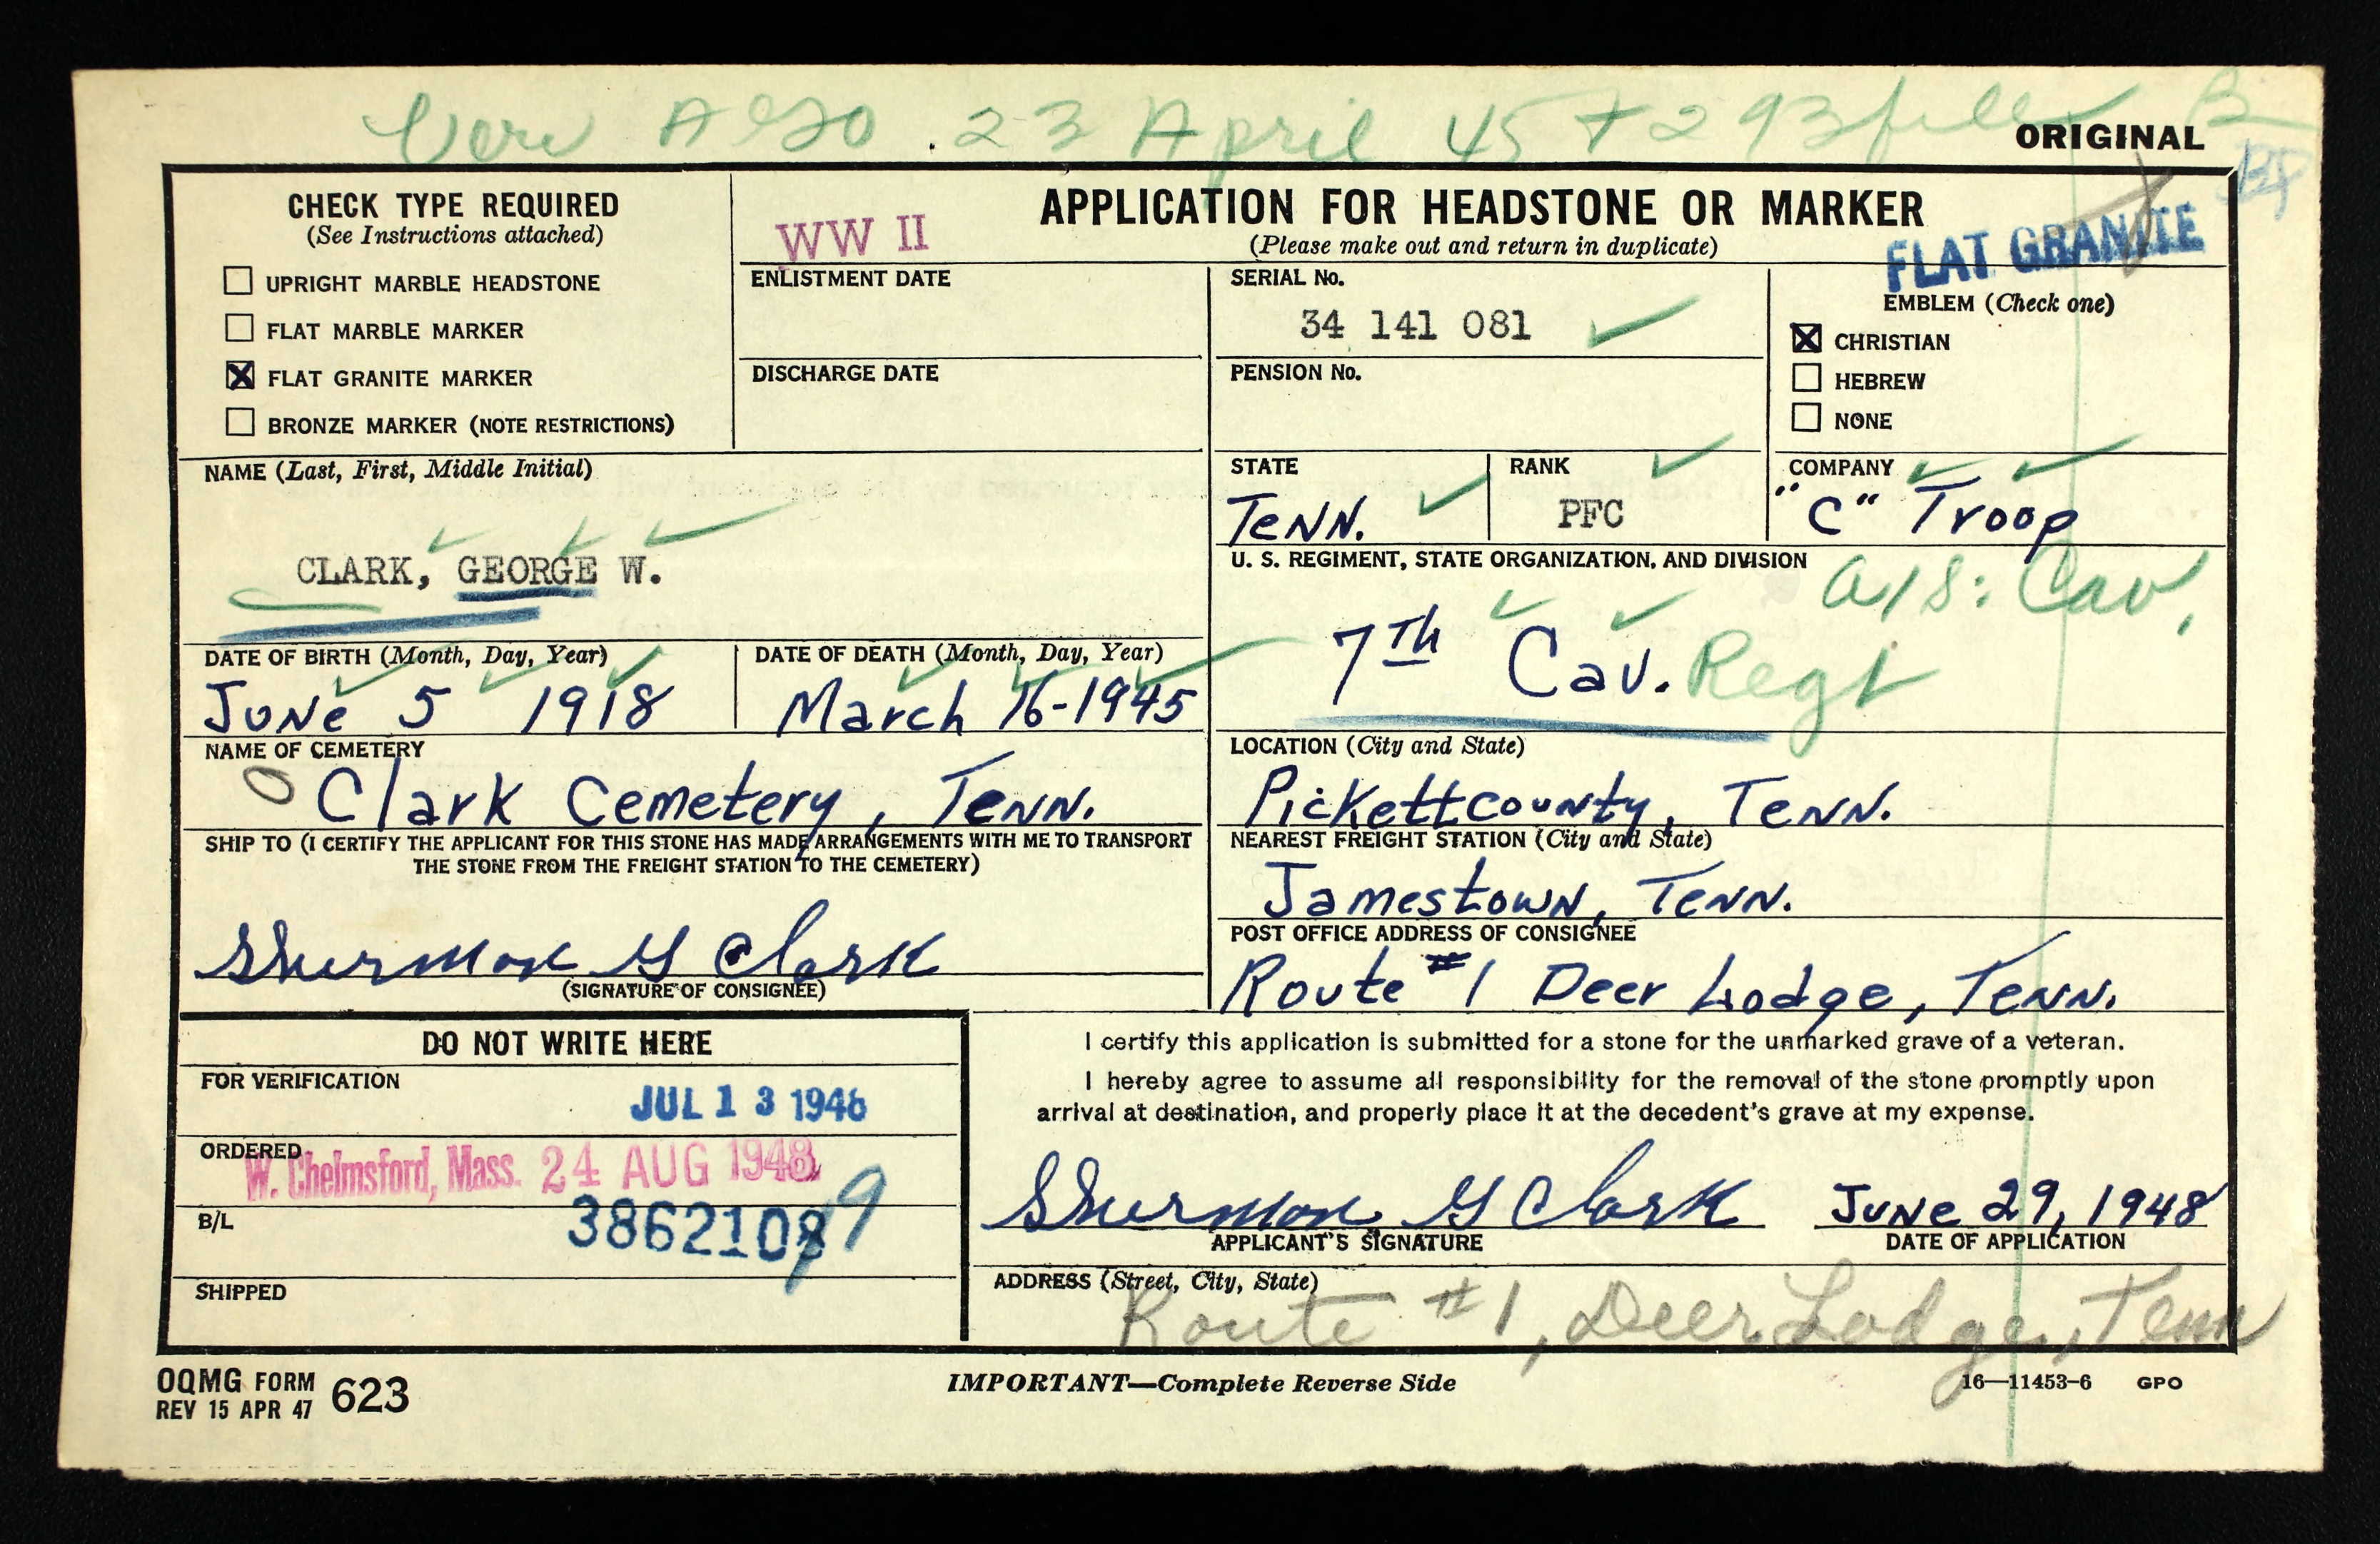 Veri AGO . 23 April 45 + 293 file B
ORIGINAL
CHECK TYPE REQUIRED
(See Instructions attached)
☐ UPRIGHT MARBLE HEADSTONE
☐ FLAT MARBLE MARKER
☒ FLAT GRANITE MARKER
☐ BRONZE MARKER (NOTE RESTRICTIONS)
WW II
APPLICATION FOR HEADSTONE OR MARKER
(Please make out and return in duplicate)
FLAT GRANITE
ENLISTMENT DATE
DISCHARGE DATE
SERIAL No.
34 141 081
PENSION No.
EMBLEM (Check one)
☒ CHRISTIAN
☐ HEBREW
☐ NONE
NAME (Last, First, Middle Initial)
CLARK, GEORGE W.
STATE
TENN.
RANK
PFC
COMPANY
"C" Troop
U. S. REGIMENT, STATE ORGANIZATION, AND DIVISION
A/S: Cav.
7th Cav. Regt
DATE OF BIRTH (Month, Day, Year)
June 5 1918
DATE OF DEATH (Month, Day, Year)
March 16-1945
NAME OF CEMETERY
Clark Cemetery, Tenn.
LOCATION (City and State)
Pickett county, Tenn.
SHIP TO (I CERTIFY THE APPLICANT FOR THIS STONE HAS MADE ARRANGEMENTS WITH ME TO TRANSPORT
THE STONE FROM THE FREIGHT STATION TO THE CEMETERY)
Shermon G Clark
(SIGNATURE OF CONSIGNEE)
NEAREST FREIGHT STATION (City and State)
Jamestown, Tenn.
POST OFFICE ADDRESS OF CONSIGNEE
Route #1 Deer Lodge, Tenn.
DO NOT WRITE HERE
FOR VERIFICATION
JUL 13 1948
ORDERED
W. Chelmsford, Mass. 24 AUG 1948
B/L
38621089 9
SHIPPED
I certify this application is submitted for a stone for the unmarked grave of a veteran.
I hereby agree to assume all responsibility for the removal of the stone promptly upon
arrival at destination, and properly place it at the decedent's grave at my expense.
Shermon G Clark June 29, 1948
APPLICANT'S SIGNATURE
DATE OF APPLICATION
ADDRESS (Street, City, State)
Route #1, Deer Lodge, Tenn
OQMG FORM 623
REV 15 APR 47
IMPORTANT—Complete Reverse Side
16—11453-6 GPO